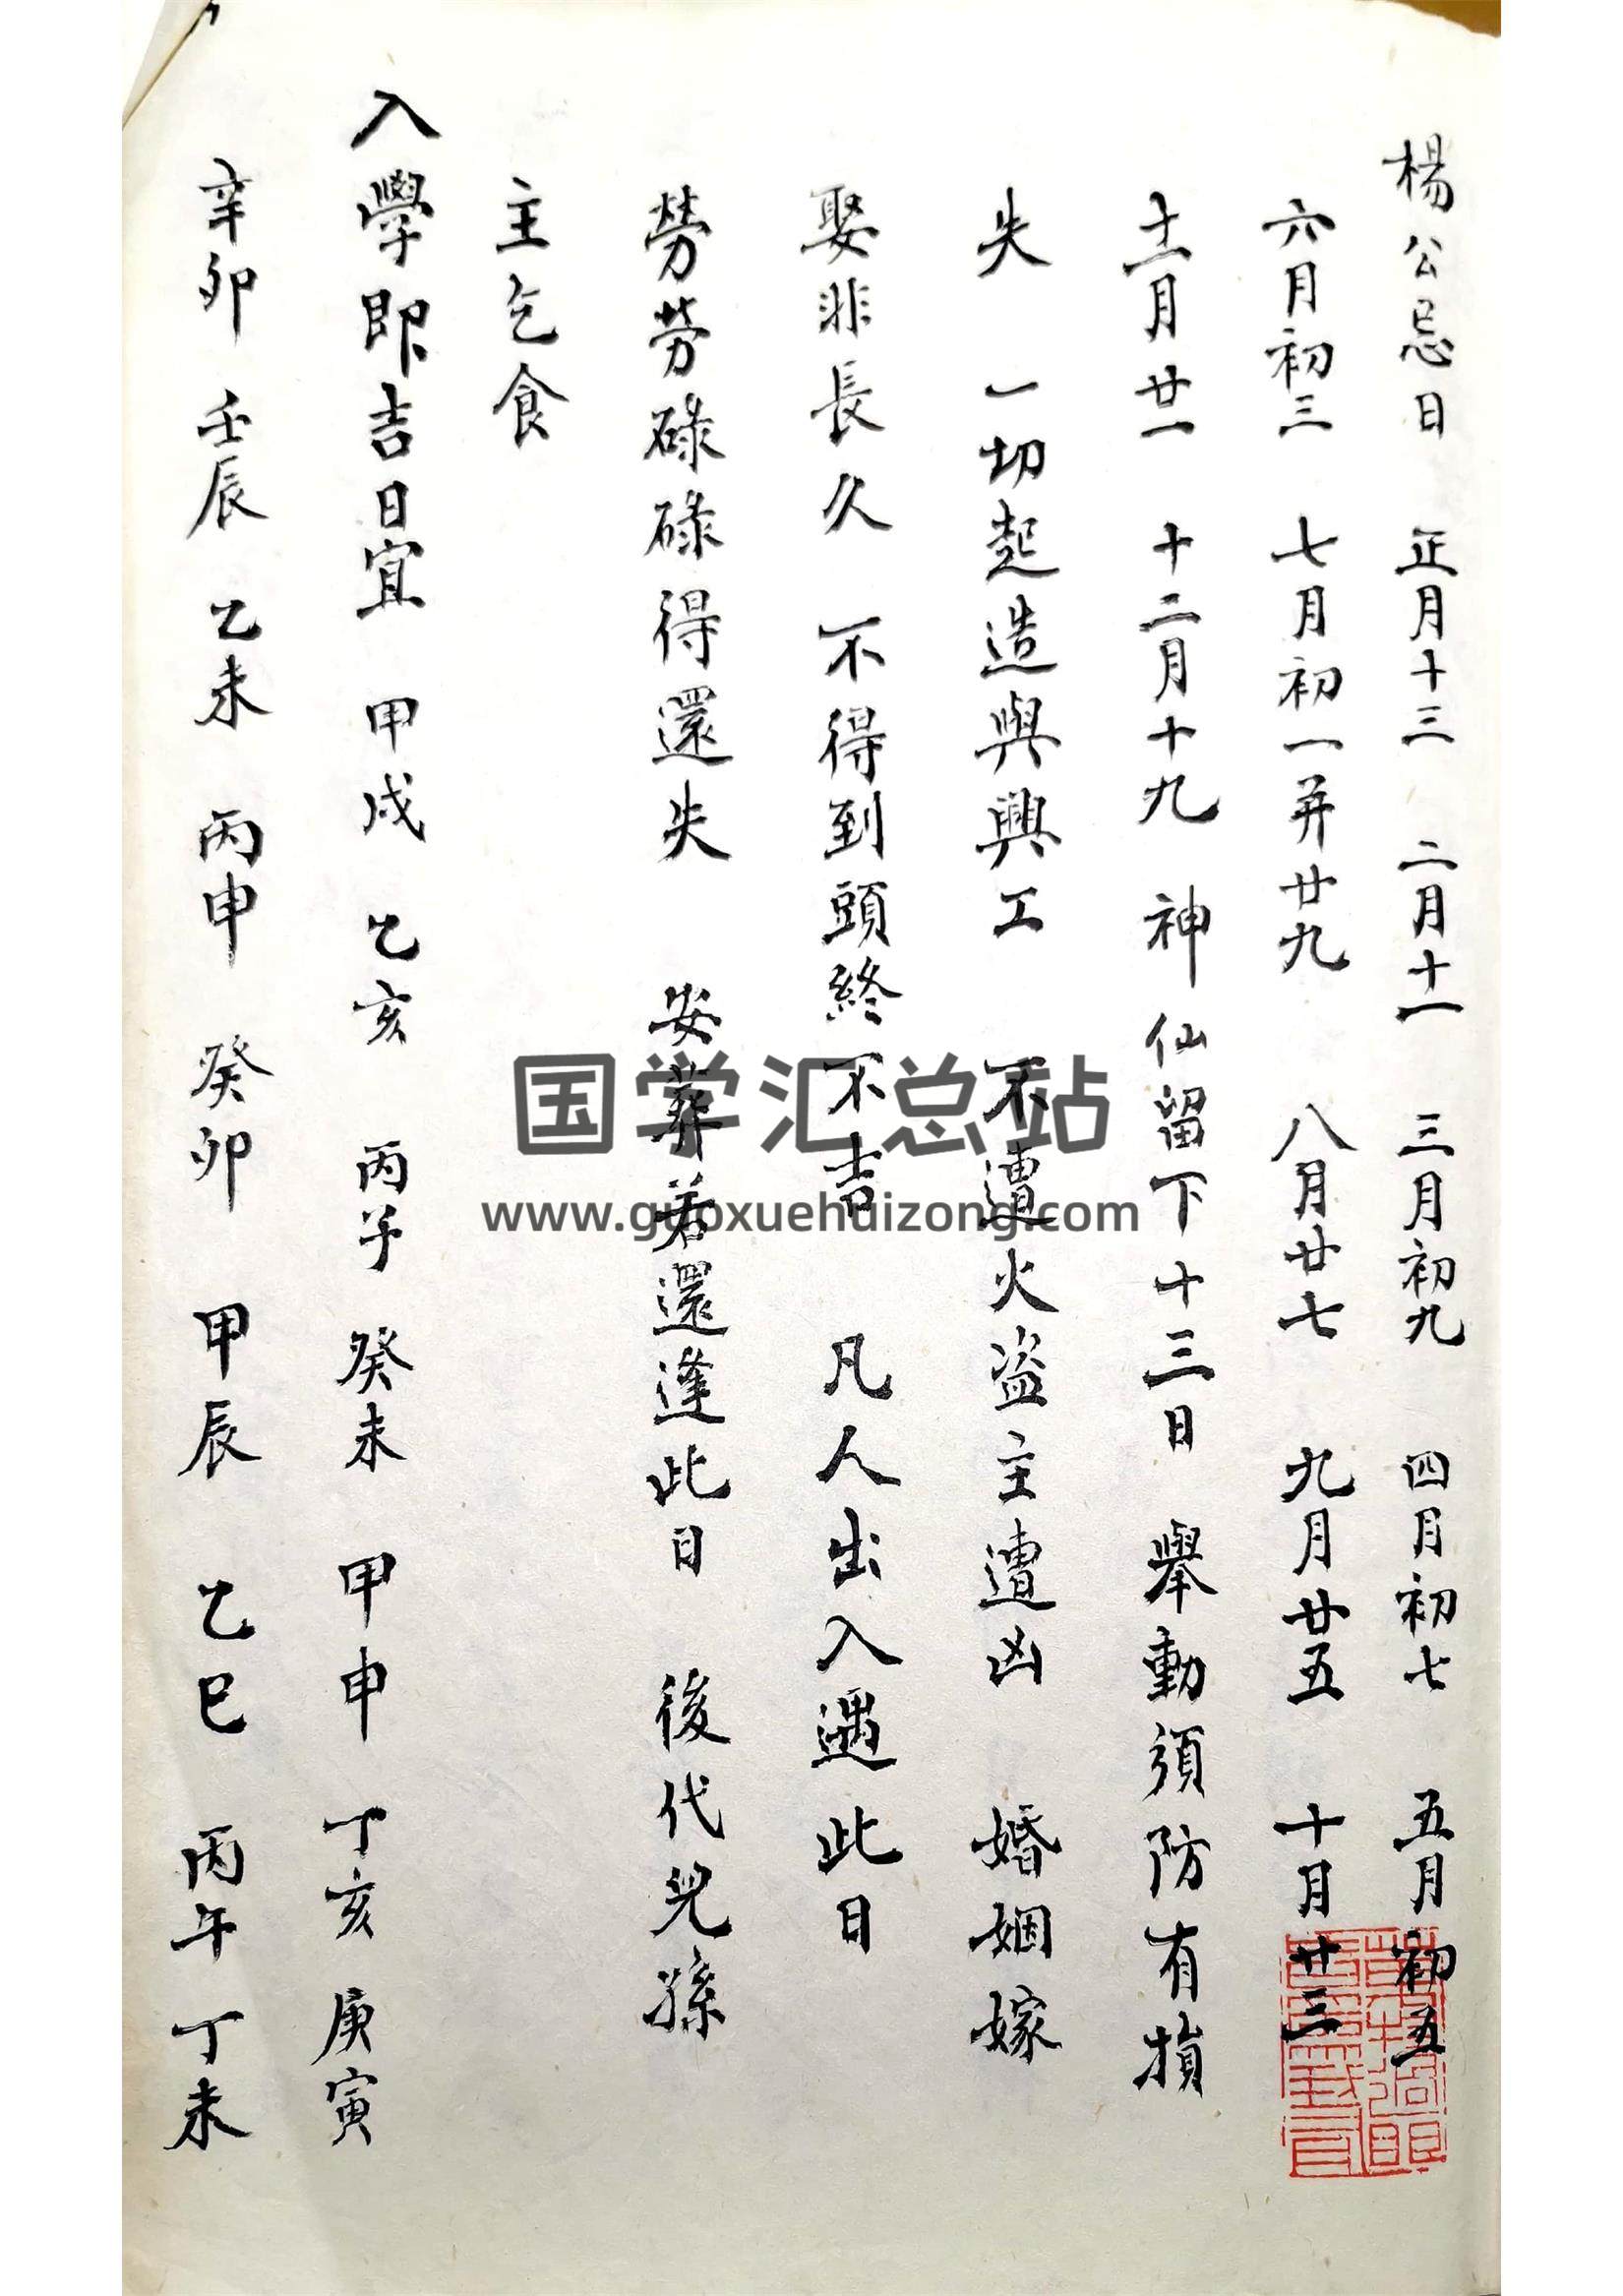 楊公忌日 正月十三 二月十一 三月初九 四月初七 五月初五
六月初三 七月初一并廿九 八月廿七 九月廿五 十月廿三
十一月廿一 十二月十九 神仙留下十三日 舉動須防有損
失 一切起造與興工 不遭火盗主遭凶 婚姻嫁
娶非長久 不得到頭終不吉 凡人出入遇此日
勞勞碌碌得還失 安葬若還逢此日 後代兒孫
主乞食
入學即吉日宜 甲戌 乙亥 丙子 癸未 甲申 丁亥 庚寅
辛卯 壬辰 乙未 丙申 癸卯 甲辰 乙巳 丙午 丁未
国学汇总站
www.guoxuehuizong.com